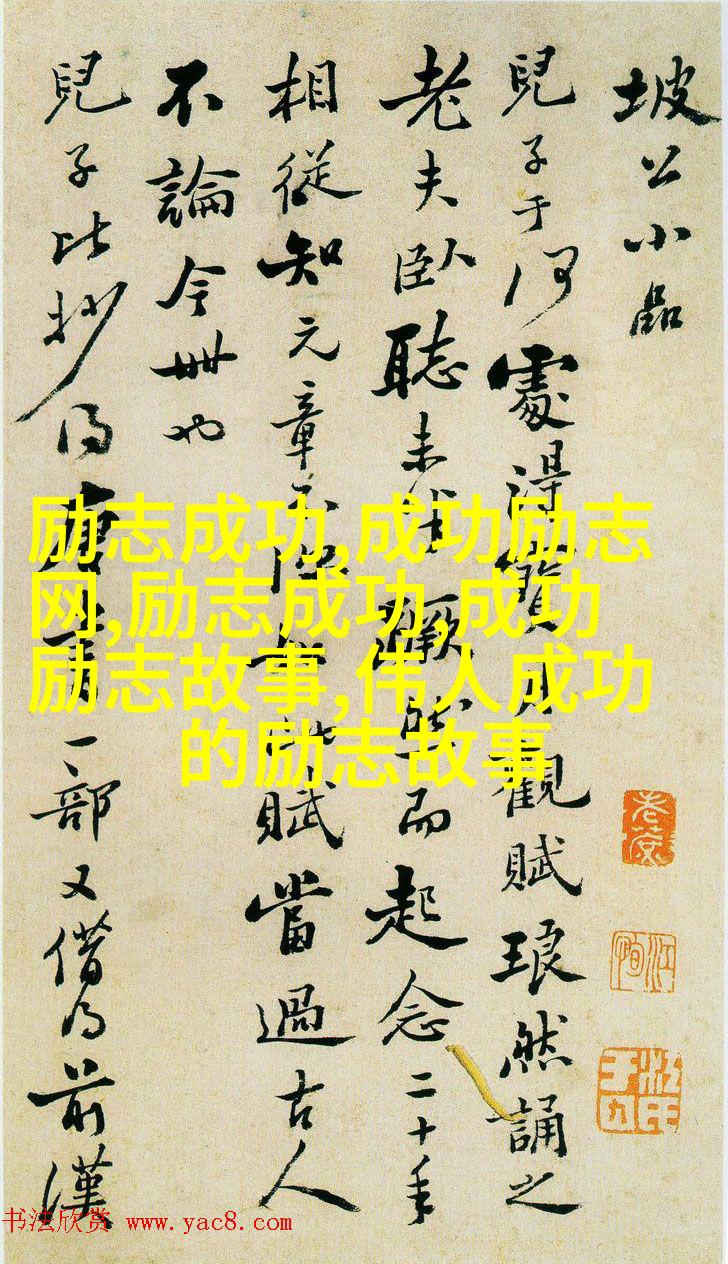 坡公小品
兒子于何處得寶月觀賦琅然誦之
老夫臥聽未半蹶然而起念二十年
相從知元章不盡若此賦當過古人
不論今世也
兒子比抄得唐書一部又借得前漢
励志成功,成功励志
网,励志成功,成功
励志故事,伟人成功
的励志故事
书法欣赏 www.yac8.com